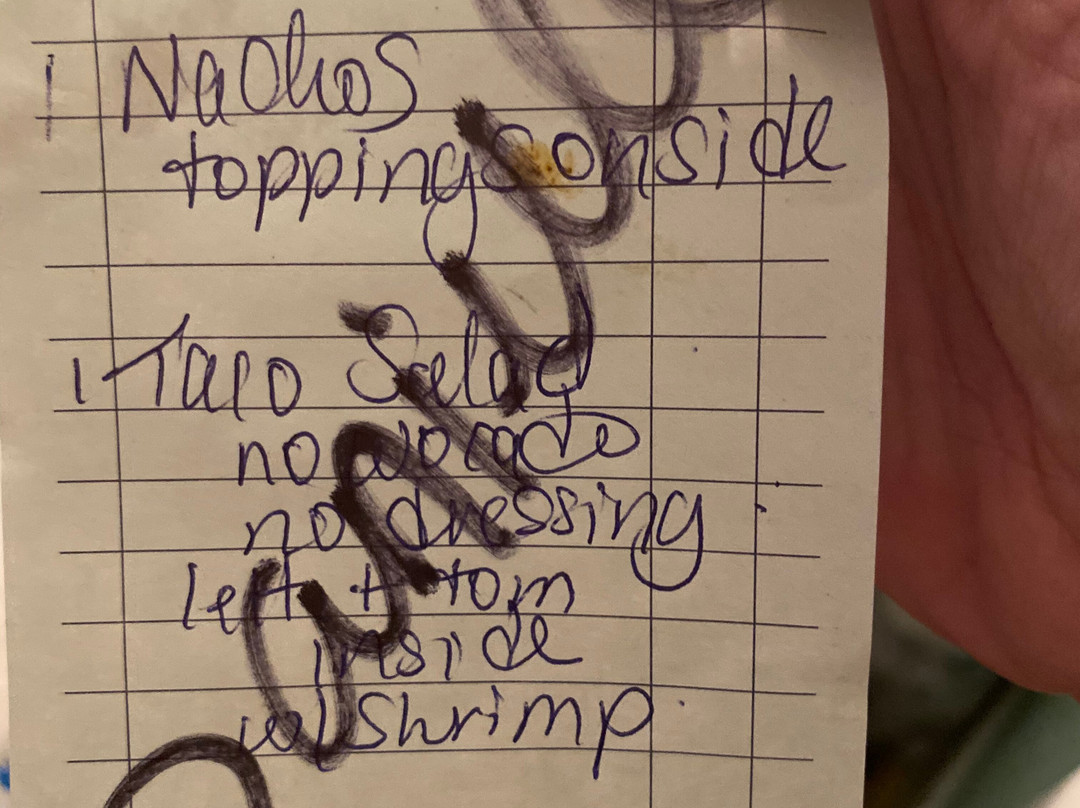 1 Nachos
toppings onside
1 Taco Salad
no avocado
no dressing
lett + tom
inside
w/ shrimp